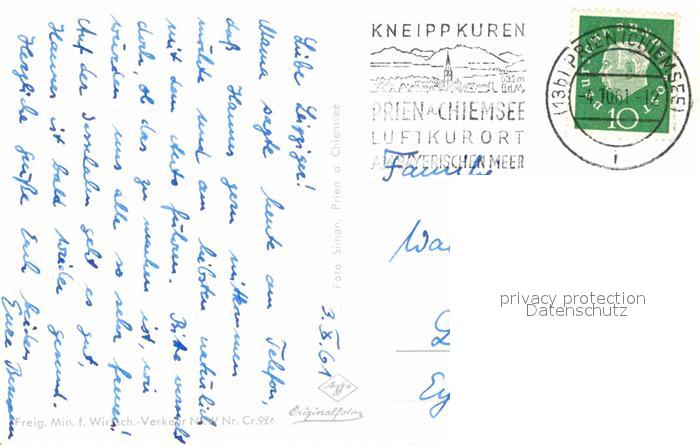 3.X.61
Liebe Leipziger!
Mama sagte heute am Telefon,
daß Hannes gern mitkommen
möchte und am liebsten natürlich
mit dem Auto führen. Bitte versucht
doch, ob das zu machen ist, wir
würden uns alle so sehr freuen!
Auf der geht es gut,
Hannes ist bald wieder gesund.
Herzliche Grüße Euch beiden
Eure
Freig. Min. f. Wirtsch.-Verkehr NRW Nr. Cr.926
Foto Simon, Prien a. Chiemsee
Agfa
Originalfoto
KNEIPPKUREN
532m
ü.d.M.
PRIEN A. CHIEMSEE
LUFTKURORT
AM BAYERISCHEN MEER
(13b) PRIEN (CHIEMSEE)
-4.10.61.-1
i
10
Familie
Wa
privacy protection
Datenschutz